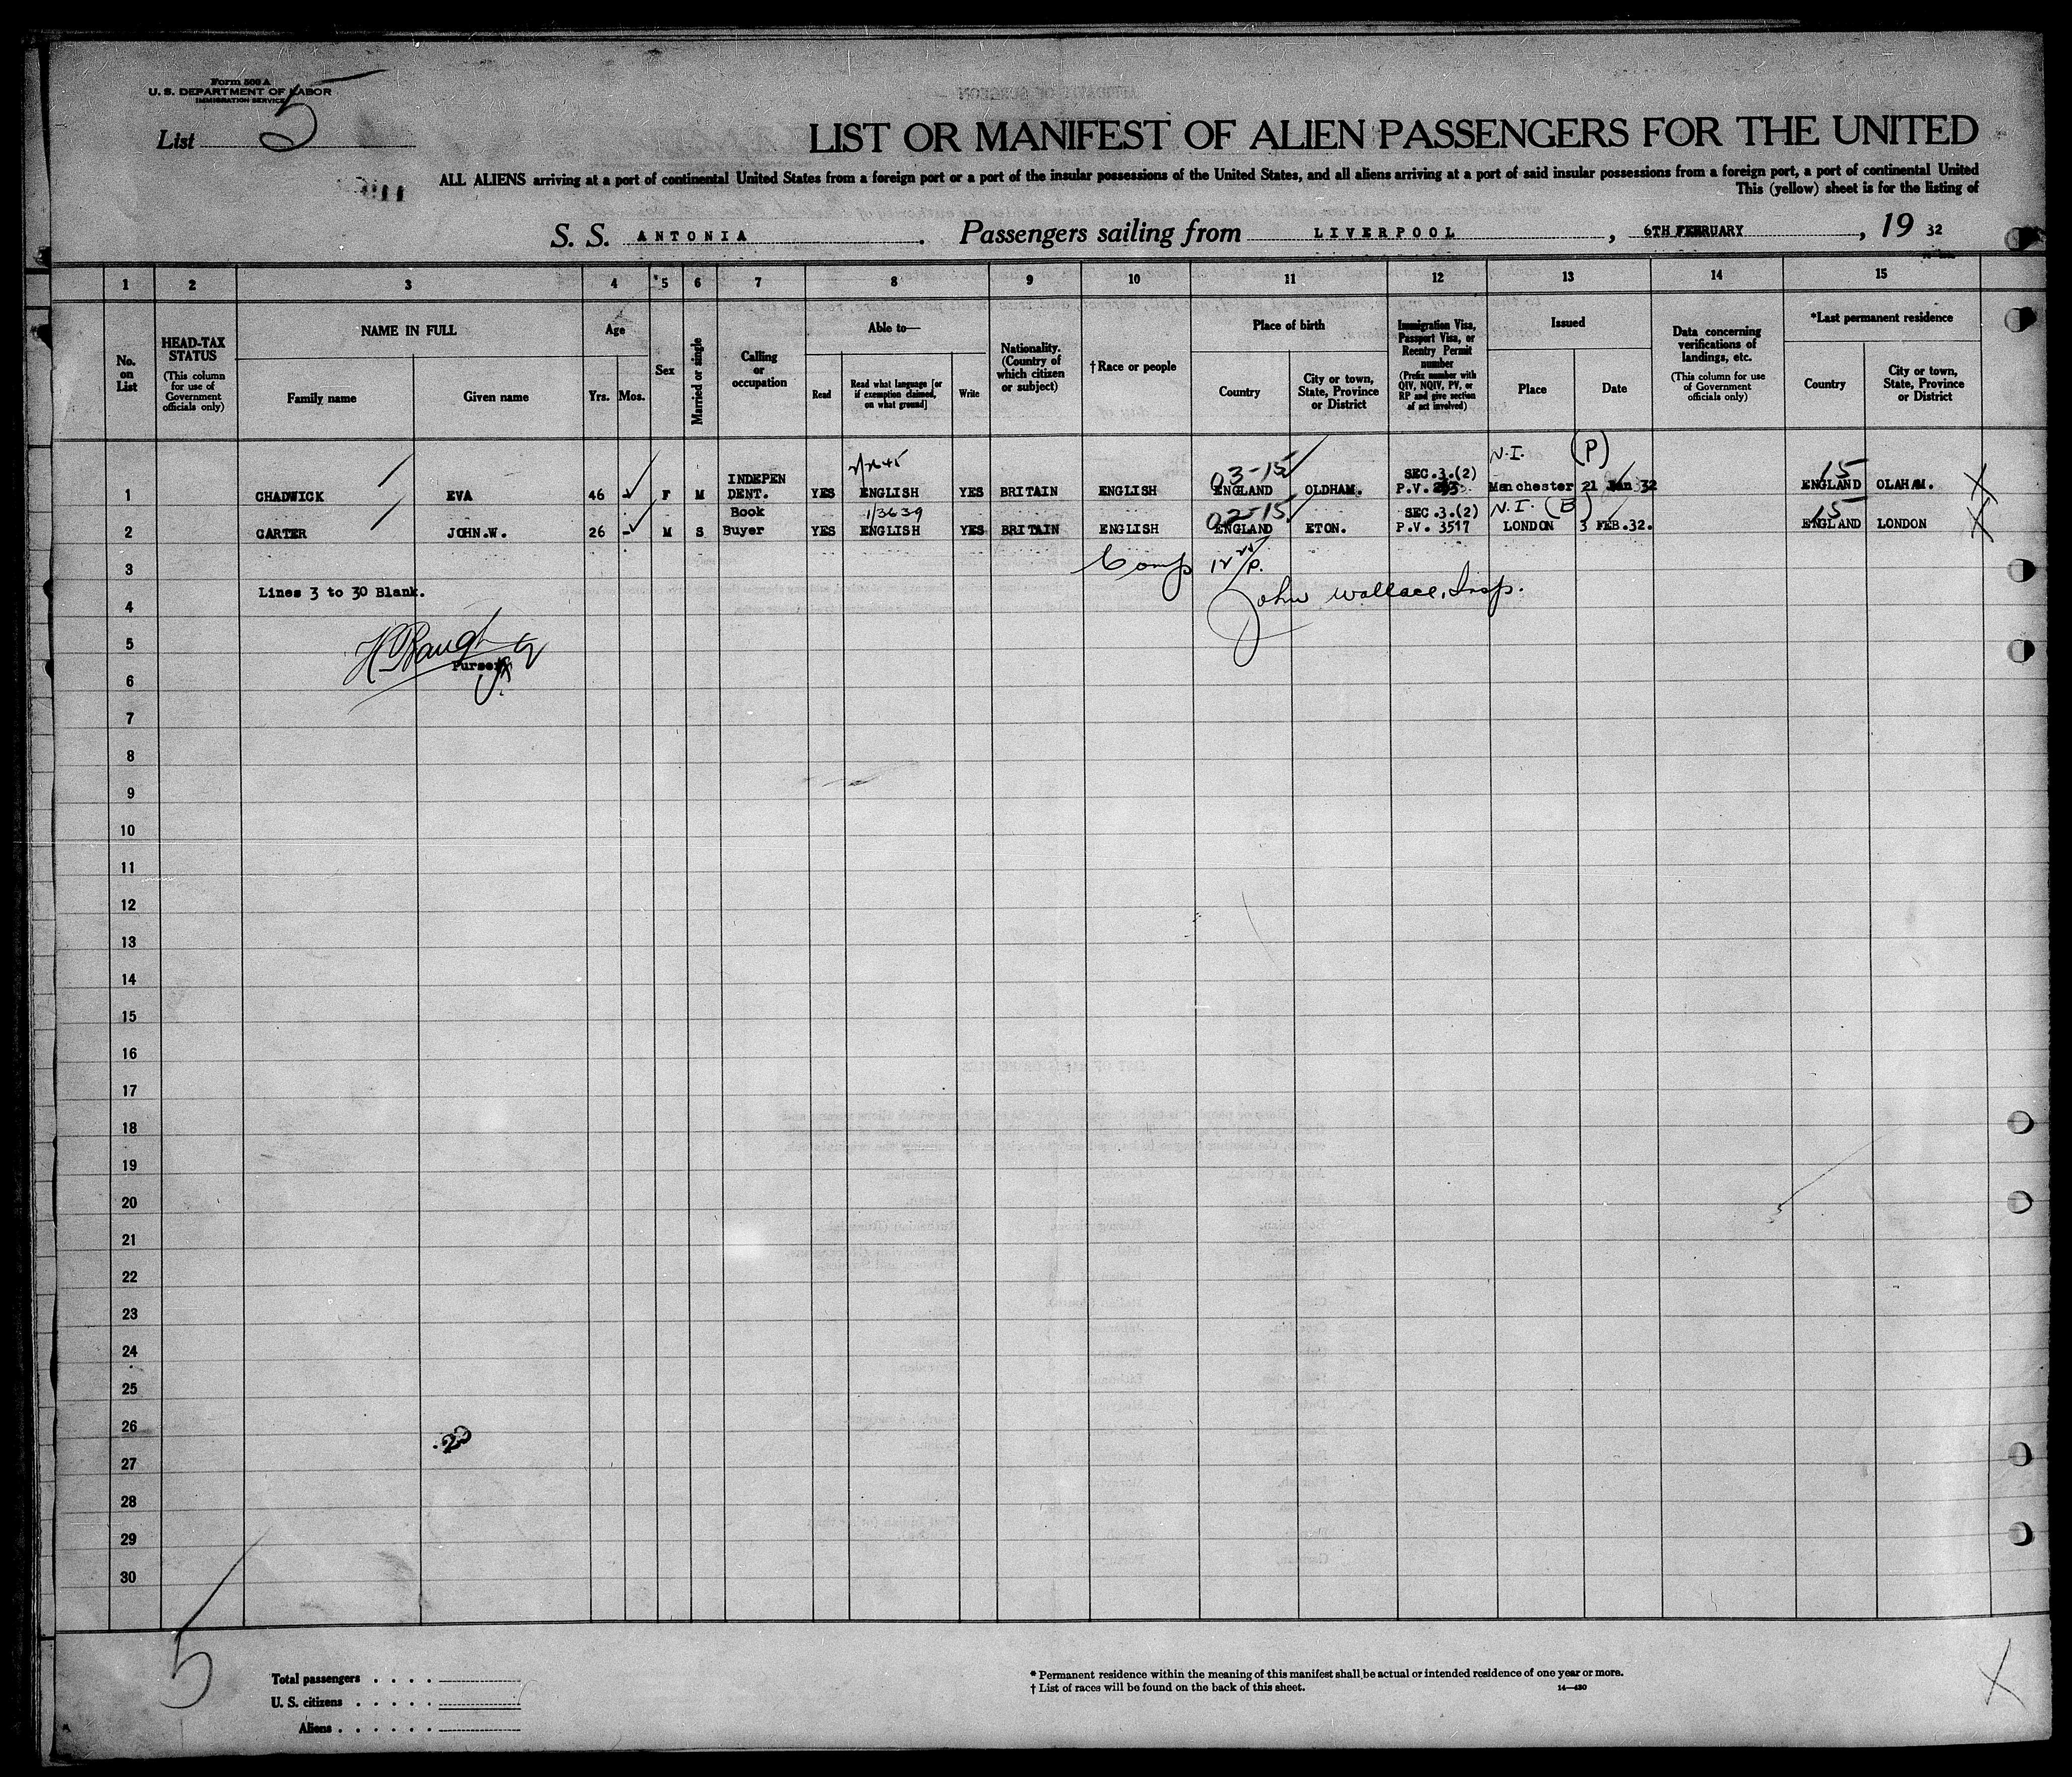 Form 500 A
U. S. DEPARTMENT OF LABOR
IMMIGRATION SERVICE
List 5
LIST OR MANIFEST OF ALIEN PASSENGERS FOR THE UNITED
ALL ALIENS arriving at a port of continental United States from a foreign port or a port of the insular possessions of the United States, and all aliens arriving at a port of said insular possessions from a foreign port, a port of continental United
This (yellow) sheet is for the listing of
S. S. ANTONIA . Passengers sailing from LIVERPOOL , 6TH FEBRUARY , 19 32
1 2 3 4 *5 6 7 8 9 10 11 12 13 14 15
No. on List
HEAD-TAX STATUS
(This column for use of Government officials only)
NAME IN FULL
Family name
Given name
Age
Yrs. Mos.
Sex
Married or single
Calling or occupation
Able to—
Read
Read what language [or if exemption claimed, on what ground]
Write
Nationality. (Country of which citizen or subject)
† Race or people
Place of birth
Country
City or town, State, Province or District
Immigration Visa, Passport Visa, or Reentry Permit number
(Prefix number with QIV, NQIV, PV, or RP and give section of act involved)
Issued
Place
Date
Data concerning verifications of landings, etc.
(This column for use of Government officials only)
*Last permanent residence
Country
City or town, State, Province or District
N.I. (P)
INDEPEN 03-15 SEC.3.(2) 15
1 CHADWICK EVA 46 - F M DENT. YES ENGLISH YES BRITAIN ENGLISH ENGLAND OLDHAM. P.V. Manchester 21 Jan 32 ENGLAND OLAHAM. X
Book 13639 02-15 SEC.3.(2) N.I. (B) 15
2 CARTER JOHN.W. 26 - M S Buyer YES ENGLISH YES BRITAIN ENGLISH ENGLAND ETON. P.V. 3517 LONDON 3 FEB.32. ENGLAND LONDON X
3 Comp
Lines 3 to 30 Blank.
4 John Wallace, Insp.
5
Purser
6
7
8
9
10
11
12
13
14
15
16
17
18
19
20
21
22
23
24
25
26
27
28
29
30
5
Total passengers . . . .
U. S. citizens . . . . .
Aliens . . . . . .
* Permanent residence within the meaning of this manifest shall be actual or intended residence of one year or more.
† List of races will be found on the back of this sheet.
14—430
X